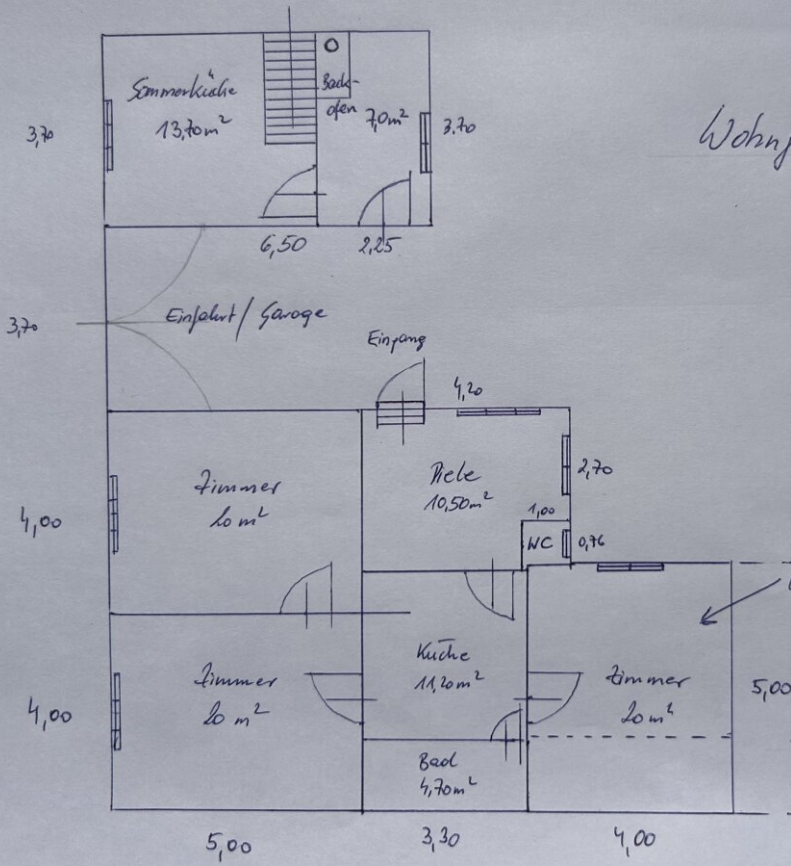 Sommerküche
13,70m²
Back-
ofen
7,0m²
3,70
3.70
Wohn
6,50
2,25
3,70
Einfahrt / Garage
Eingang
4,20
Zimmer
20m²
Diele
10,50m²
2,70
1,00
WC
0,76
4,00
Küche
11,20m²
Zimmer
20m²
Zimmer
20m²
4,00
5,00
Bad
4,70m²
5,00
3,30
4,00